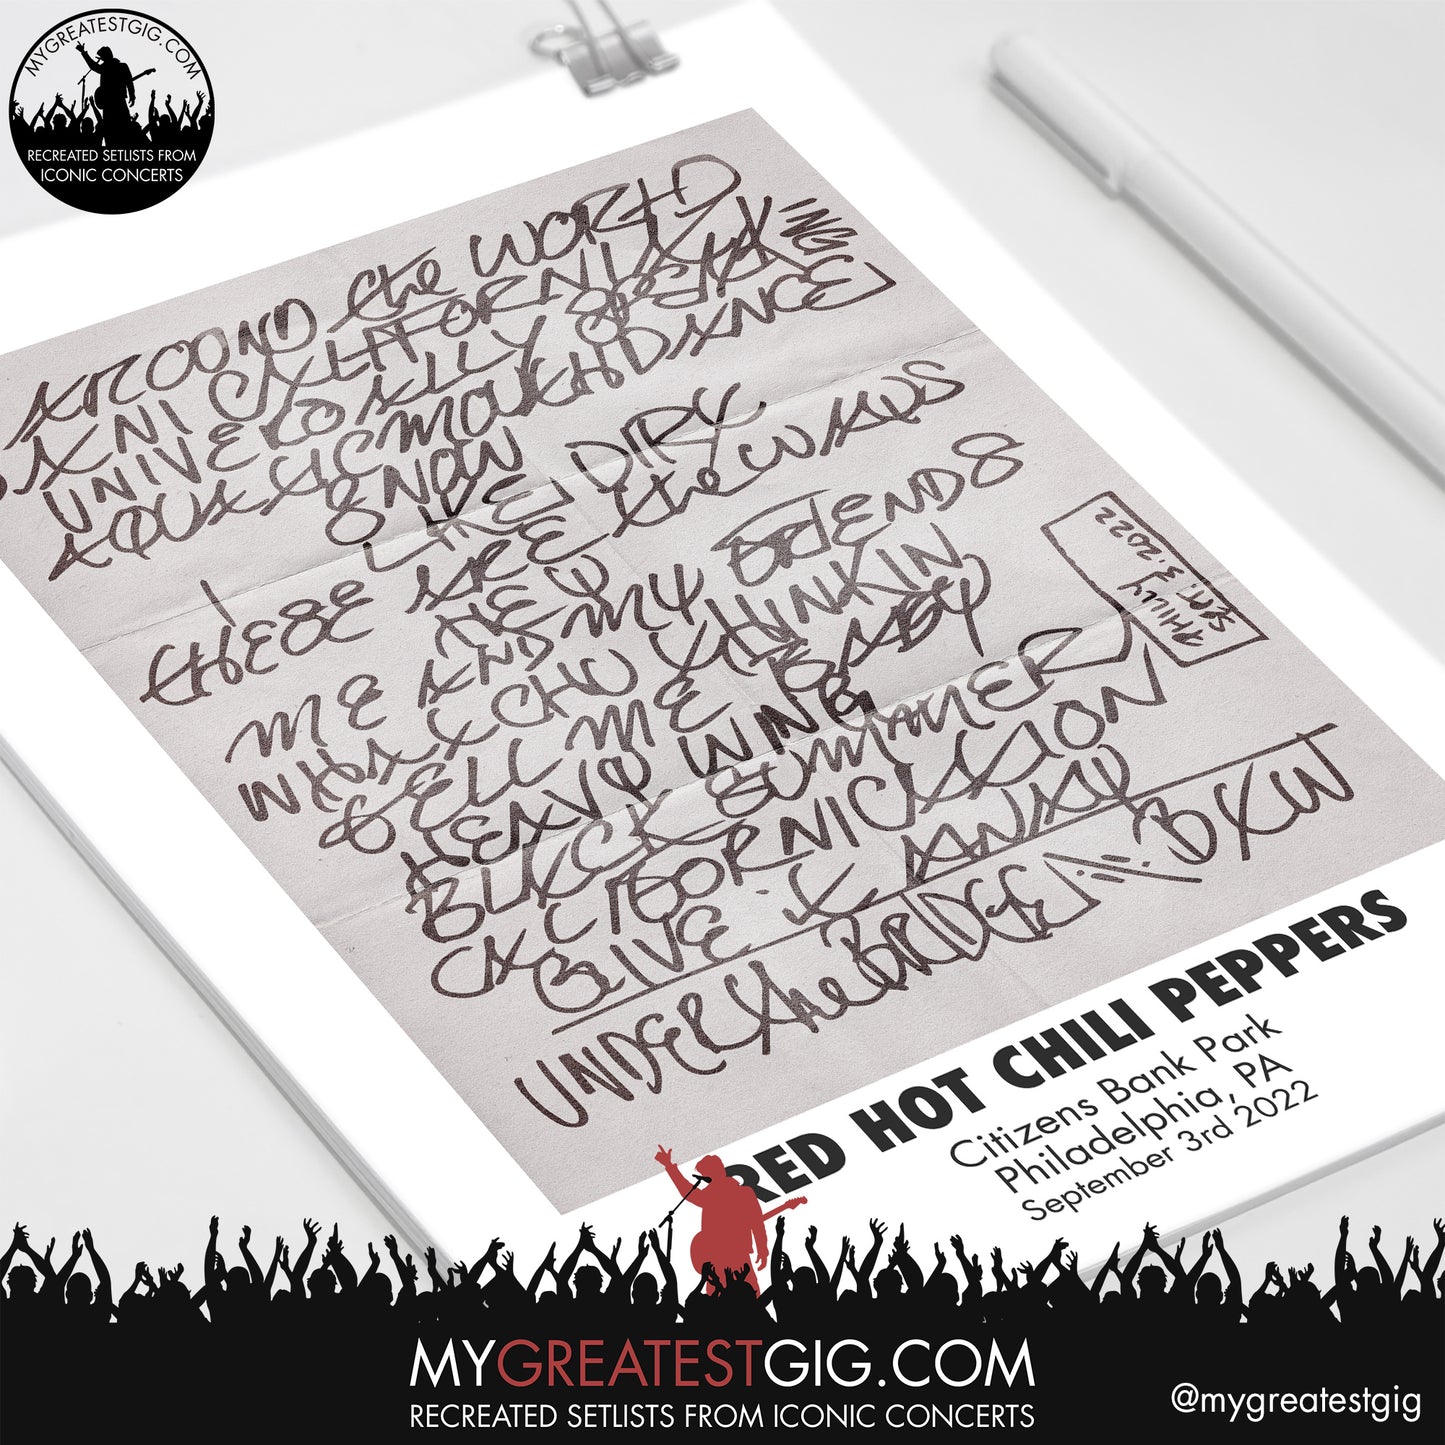 MYGREATESTGIG.COM
RECREATED SETLISTS FROM
ICONIC CONCERTS
AROOND the WORLD
DANI CALIFORNIA
UNIVERSALLY SPEAKING
AQUATIC MOUTH DANCE
SNOW
I LIKE DIRT
THESE ARE the WAYS
HEY
ME AND MY FRIENDS
WHATCHU THINKIN
TELL ME BABY
HEAVY WING
BLACK SUMMER
CALIFORNICATION
GIVE IT AWAY
UNDER the BRIDGE
PHILLY
SEPT. 3. 2022
RED HOT CHILI PEPPERS
Citizens Bank Park
Philadelphia, PA
September 3rd 2022
MYGREATESTGIG.COM
RECREATED SETLISTS FROM ICONIC CONCERTS
@mygreatestgig